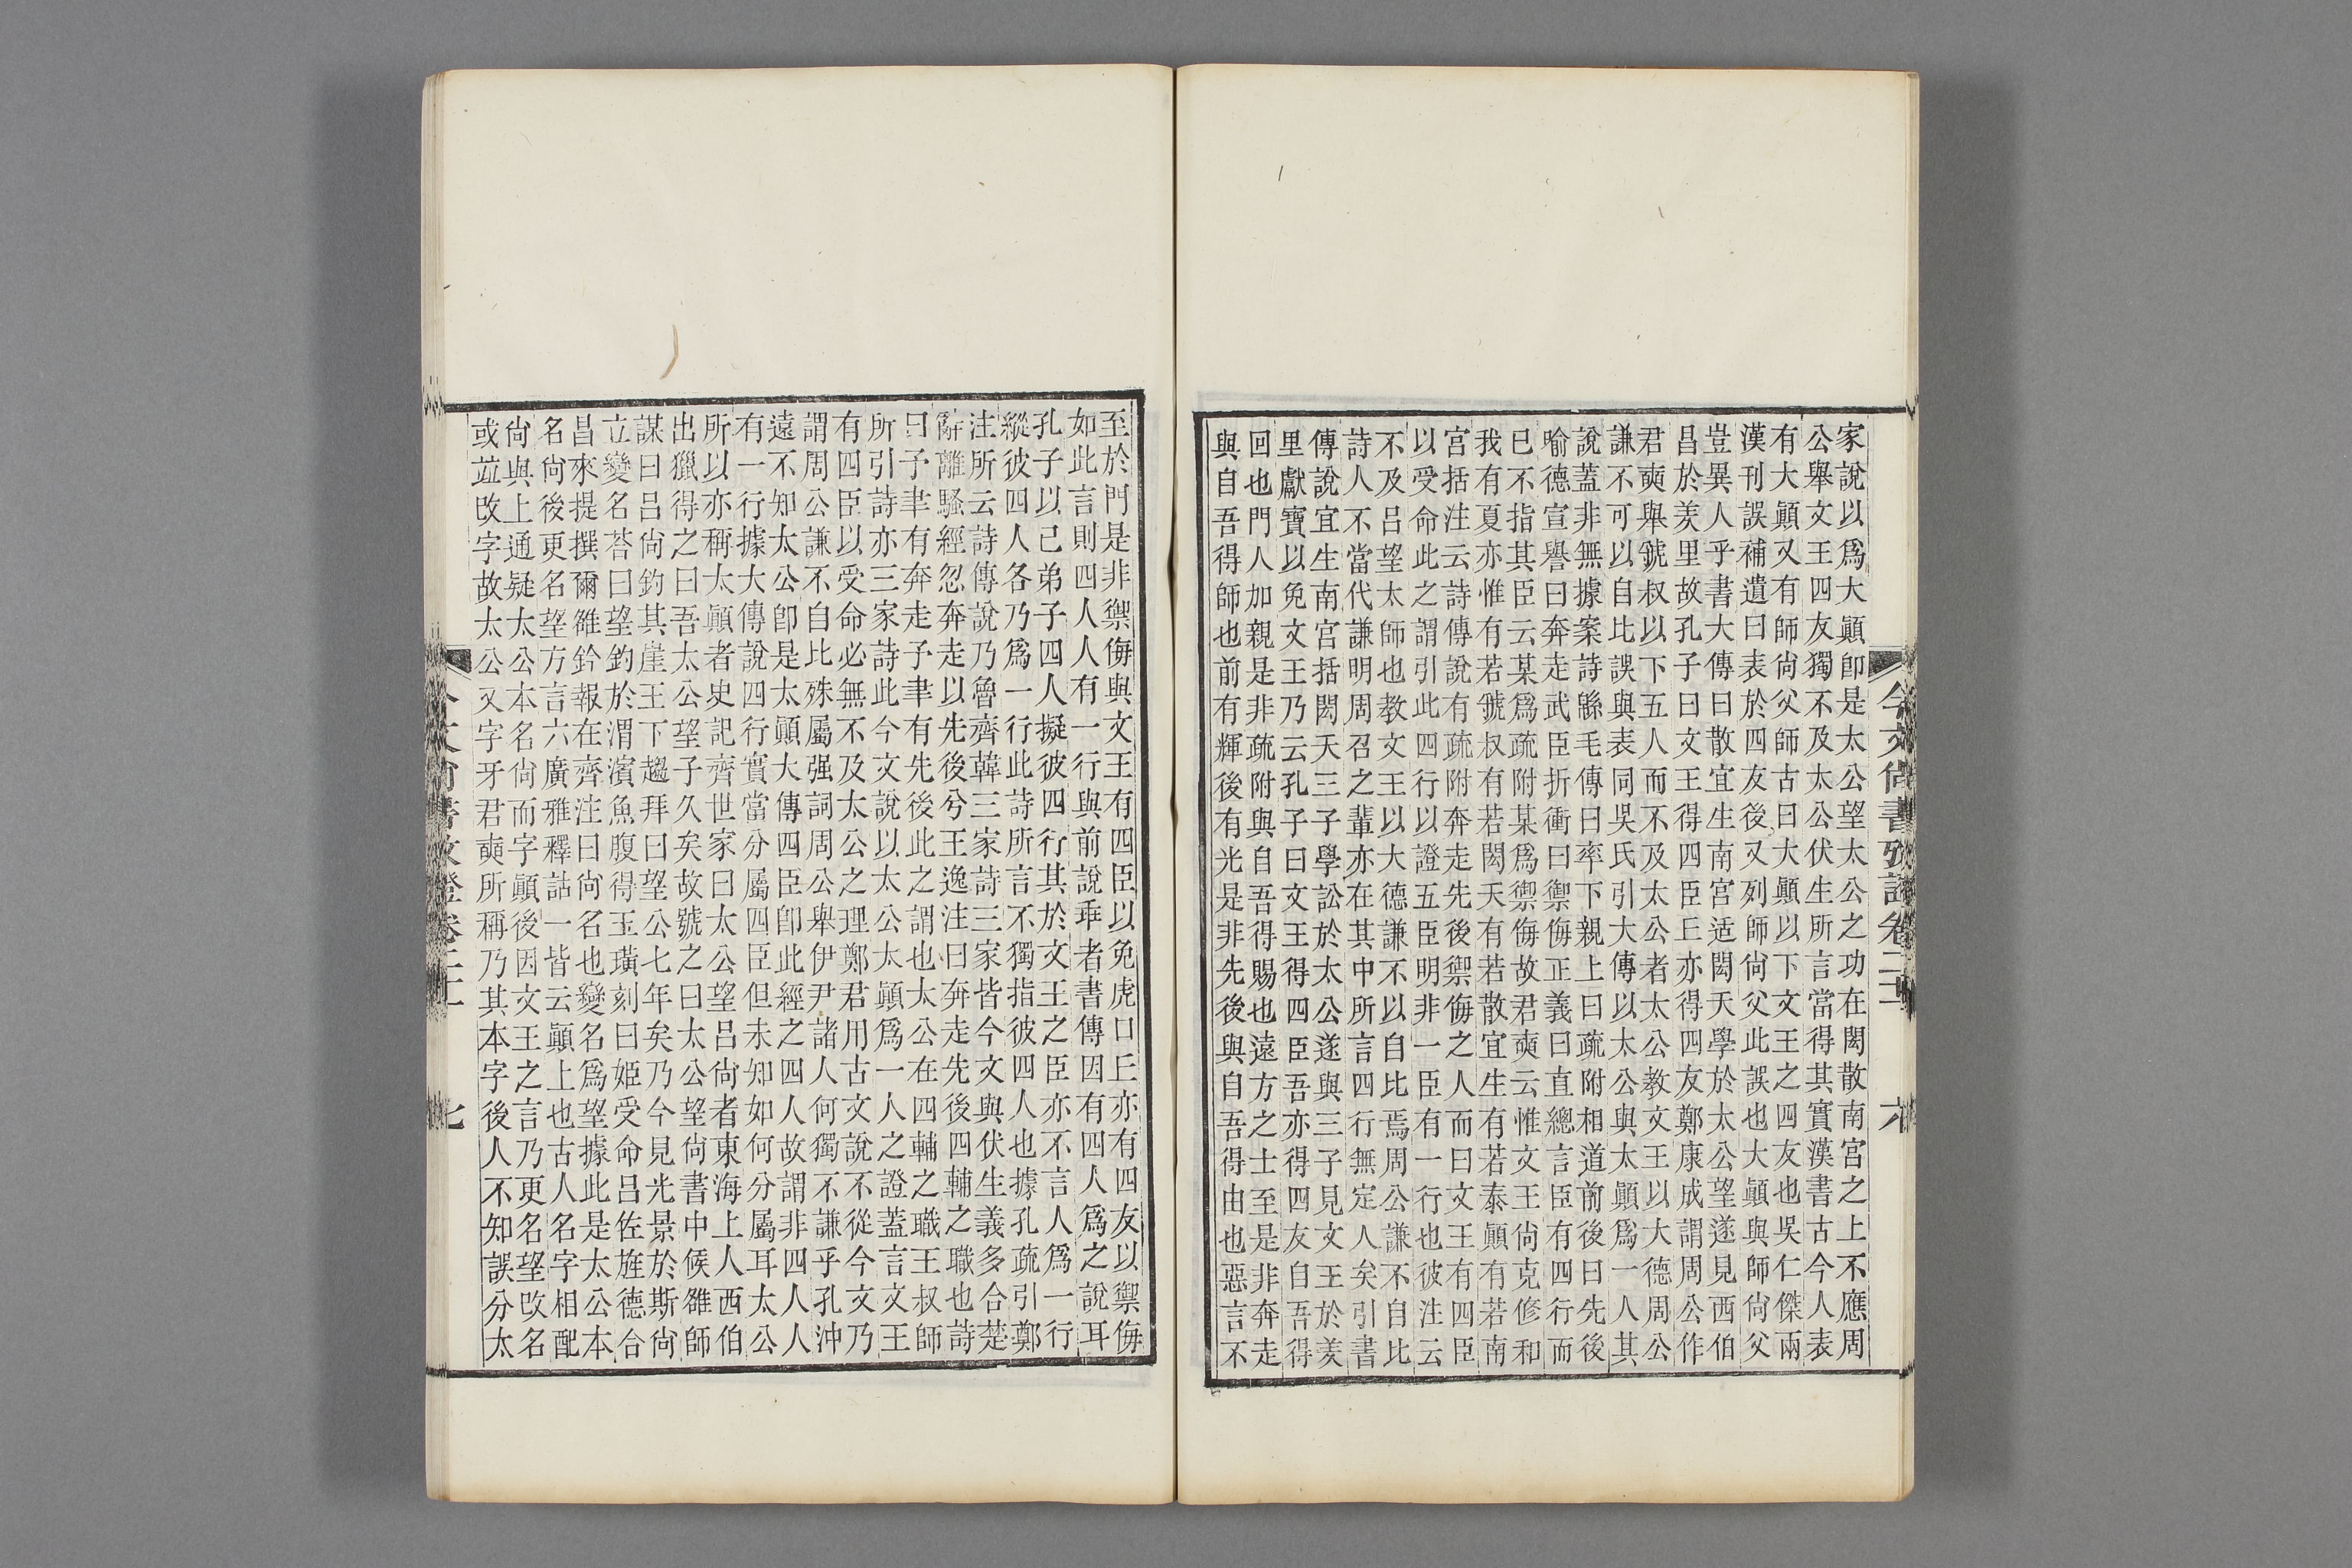 家說以爲大顚卽是太公望太公之功在閎散南宮之上不應周
公舉文王四友獨不及太公伏生所言當得其實漢書古今人表
有大顚又有師尙父師古曰大顚以下文王之四友也吳仁傑兩
漢刊誤補遺曰表於四友後又列師尙父此誤也大顚與師尙父
豈異人乎書大傳曰散宜生南宮适閎天學於太公望遂見西伯
昌於羑里故孔子曰文王得四臣丘亦得四友鄭康成謂周公作
君奭舉虢叔以下五人而不及太公者太公教文王以大德周公
謙不可以自比誤與表同吳氏引大傳以太公與太顚爲一人其
說蓋非無據案詩緜毛傳曰率下親上曰疏附相道前後曰先後
喻德宣譽曰奔走武臣折衝曰禦侮正義曰直總言臣有四行而
已不指其臣云某爲疏附某爲禦侮故君奭云惟文王尙克修和
我有夏亦惟有若虢叔有若閎天有若散宜生有若泰顚有若南
宮括注云詩傳說有疏附奔走先後禦侮之人而曰文王有四臣
以受命此之謂引此四行以證五臣明非一臣有一行也彼注云
不及呂望太師也教文王以大德謙不以自比焉周公謙不自比
詩人不當代謙明周召之輩亦在其中所言四行無定人矣引書
傳說宜生南宮括閎天三子學訟於太公遂與三子見文王於羑
里獻寶以免文王乃云孔子曰文王得四臣吾亦得四友自吾得
回也門人加親是非疏附與自吾得賜也遠方之士至是非奔走
與自吾得師也前有輝後有光是非先後與自吾得由也惡言不
今文尙書攷證卷二十 六
至於門是非禦侮與文王有四臣以免虎口丘亦有四友以禦侮
如此言則四人人有一行與前說乖者書傳因有四人爲之說耳
孔子以己弟子四人擬彼四行其於文王之臣亦不言人爲一行
縱彼四人各乃爲一行此詩所言不獨指彼四人也據孔疏引鄭
注所云詩傳說乃魯齊韓三家詩三家皆今文與伏生義多合楚
辭離騷經忽奔走以先後兮王逸注曰奔走先後四輔之職也詩
曰予聿有奔走予聿有先後此之謂也太公在四輔之職王叔師
所引詩亦三家詩此今文說以太公太顚爲一人之證蓋言文王
有四臣以受命必無不及太公之理鄭君用古文說不從今文乃
謂周公謙不自比殊屬强詞周公舉伊尹諸人何獨不謙乎孔沖
遠不知太公卽是太顚大傳四臣卽此經之四人故謂非四人人
有一行據大傳說四行實當分屬四臣但未知如何分屬耳太公
所以亦稱太顚者史記齊世家曰太公望呂尙者東海上人西伯
出獵得之曰吾太公望子久矣故號之曰太公望尙書中候雒師
謀曰呂尙釣其崖王下趨拜曰望公七年矣乃今見光景於斯尙
立變名荅曰望釣於渭濱魚腹得玉璜刻曰姬受命呂佐旌德合
昌來提撰爾雒鈐報在齊注曰尙名也變名爲望據此是太公本
名尙後更名望方言六廣雅釋詁一皆云顚上也古人名字相配
尙與上通疑太公本名尙而字顚後因文王之言乃更名望攺名
或竝攺字故太公又字牙君奭所稱乃其本字後人不知誤分太
今文尙書攷證卷二十 七